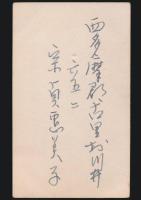 西多摩郡古里村川井
二六五二
恵美子